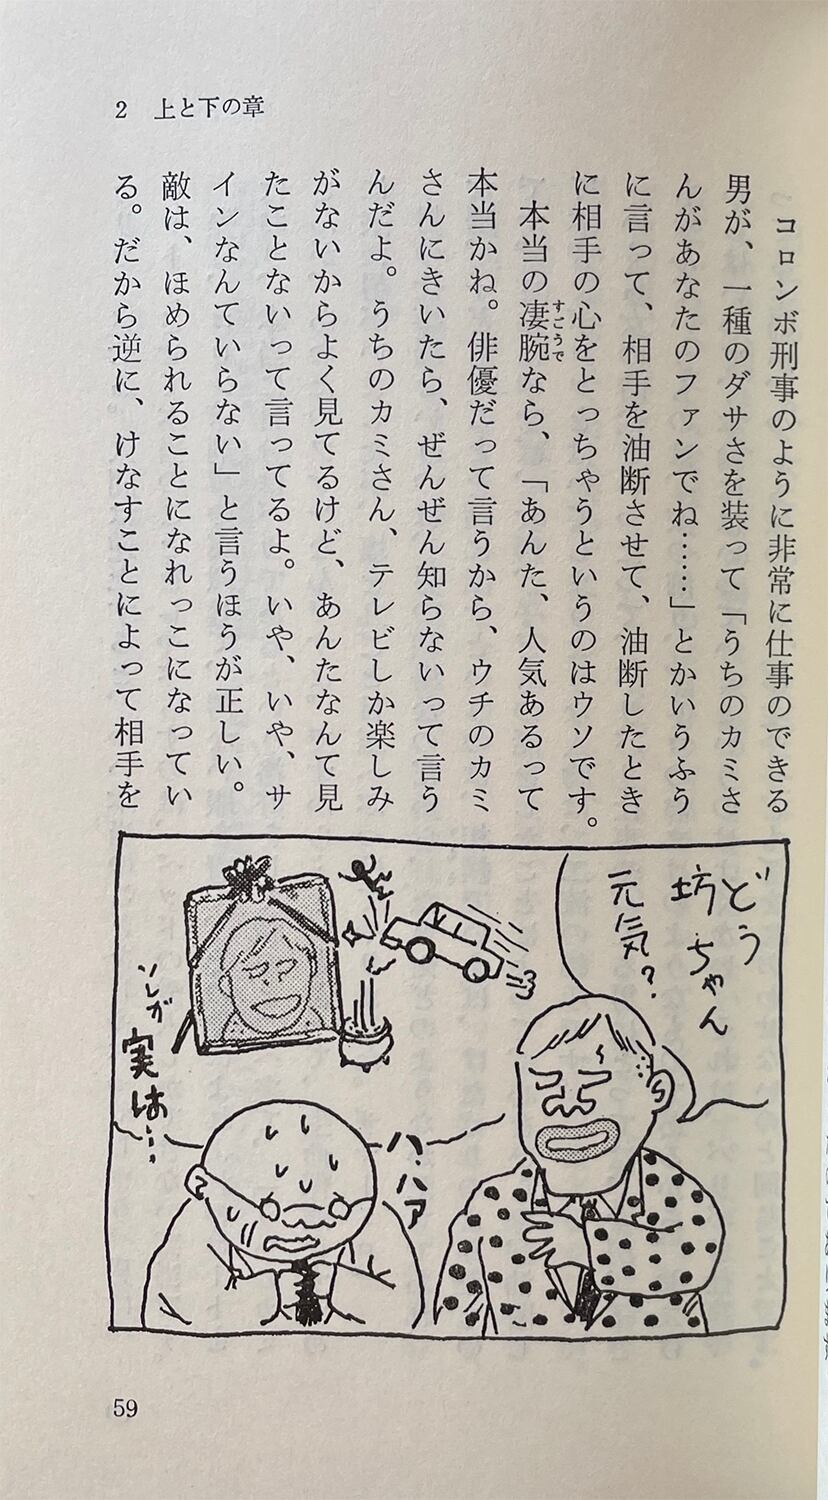 2 上と下の章
コロンボ刑事のように非常に仕事のできる
男が、一種のダサさを装って「うちのカミさ
んがあなたのファンでね……」とかいうふう
に言って、相手を油断させて、油断したとき
に相手の心をとっちゃうというのはウソです。
本当の凄腕なら、「あんた、人気あるって
すごうで
本当かね。俳優だって言うから、ウチのカミ
さんにきいたら、ぜんぜん知らないって言う
んだよ。うちのカミさん、テレビしか楽しみ
がないからよく見てるけど、あんたなんて見
たことないって言ってるよ。いや、いや、サ
インなんていらない」と言うほうが正しい。
敵は、ほめられることになれっこになってい
る。だから逆に、けなすことによって相手を
どう
坊ちゃん
元気?
ハ・ハア
ソレガ
実は…
59